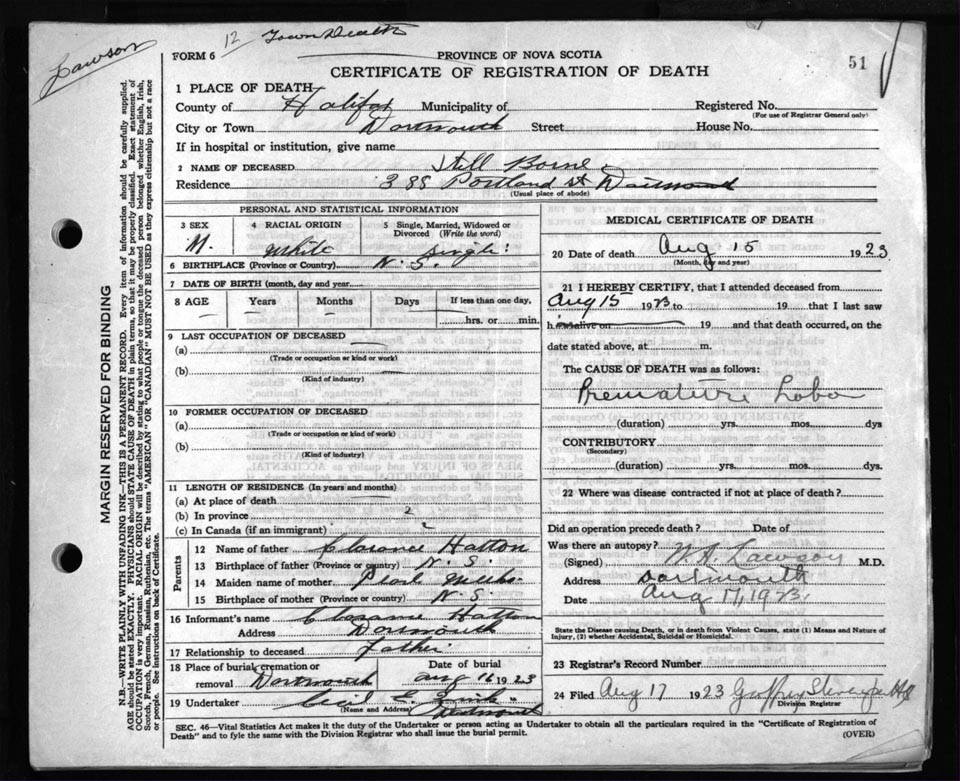 Lawson
12 Town Death
FORM 6
PROVINCE OF NOVA SCOTIA
51
CERTIFICATE OF REGISTRATION OF DEATH
1 PLACE OF DEATH
County of Halifax Municipality of Registered No.
(For use of Registrar General only)
City or Town Dartmouth Street House No.
If in hospital or institution, give name
2 NAME OF DECEASED Still Borne
Residence 388 Portland St Dartmouth
(Usual place of abode)
PERSONAL AND STATISTICAL INFORMATION
3 SEX 4 RACIAL ORIGIN 5 Single, Married, Widowed or Divorced (Write the word)
M. White Single
6 BIRTHPLACE (Province or Country) N. S.
7 DATE OF BIRTH (month, day and year)
8 AGE Years Months Days If less than one day,
hrs. or min.
9 LAST OCCUPATION OF DECEASED
(a)
(Trade or occupation or kind or work)
(b)
(Kind of industry)
10 FORMER OCCUPATION OF DECEASED
(a)
(Trade or occupation or kind of work)
(b)
(Kind of industry)
11 LENGTH OF RESIDENCE (In years and months)
(a) At place of death
(b) In province
(c) In Canada (if an immigrant)
Parents
12 Name of father Clarence Hatton
13 Birthplace of father (Province or country) N. S.
14 Maiden name of mother Pearl
15 Birthplace of mother (Province or country) N. S.
16 Informant's name Clarence Hatton
Address Dartmouth
17 Relationship to deceased Father
18 Place of burial, cremation or removal Dartmouth Date of burial Aug 16 1923
19 Undertaker
(Name and Address) Dartmouth
MEDICAL CERTIFICATE OF DEATH
20 Date of death Aug 15 1923
(Month, day and year)
21 I HEREBY CERTIFY, that I attended deceased from
Aug 15 1923 to 19 that I last saw
h alive on 19 and that death occurred, on the
date stated above, at m.
The CAUSE OF DEATH was as follows:
Premature Labor
(duration) yrs. mos. dys
CONTRIBUTORY
(Secondary)
(duration) yrs. mos. dys.
22 Where was disease contracted if not at place of death?
Did an operation precede death? Date of
Was there an autopsy?
(Signed) Lawson M.D.
Address Dartmouth
Date Aug 17, 1923
State the Disease causing Death, or in death from Violent Causes, state (1) Means and Nature of
Injury, (2) whether Accidental, Suicidal or Homicidal.
23 Registrar's Record Number
24 Filed Aug 17 1923
Division Registrar
SEC. 46—Vital Statistics Act makes it the duty of the Undertaker or person acting as Undertaker to obtain all the particulars required in the "Certificate of Registration of
Death" and to fyle same with the Division Registrar who shall issue the burial permit.
(OVER)
MARGIN RESERVED FOR BINDING
N.B.—WRITE PLAINLY WITH UNFADING INK—THIS IS A PERMANENT RECORD. Every item of information should be carefully supplied.
AGE should be stated EXACTLY. PHYSICIANS should STATE CAUSE OF DEATH in plain terms, so that it may be properly classified. Exact statement of
OCCUPATION is very important. RACIAL ORIGIN will be described by stating to what people or tongue the deceased person belonged whether English, Irish,
Scotch, French, German, Russian, Ruthenian, etc. The terms "AMERICAN" OR "CANADIAN" MUST NOT BE USED as they express citizenship but not a race
or people. See instructions on back of Certificate.